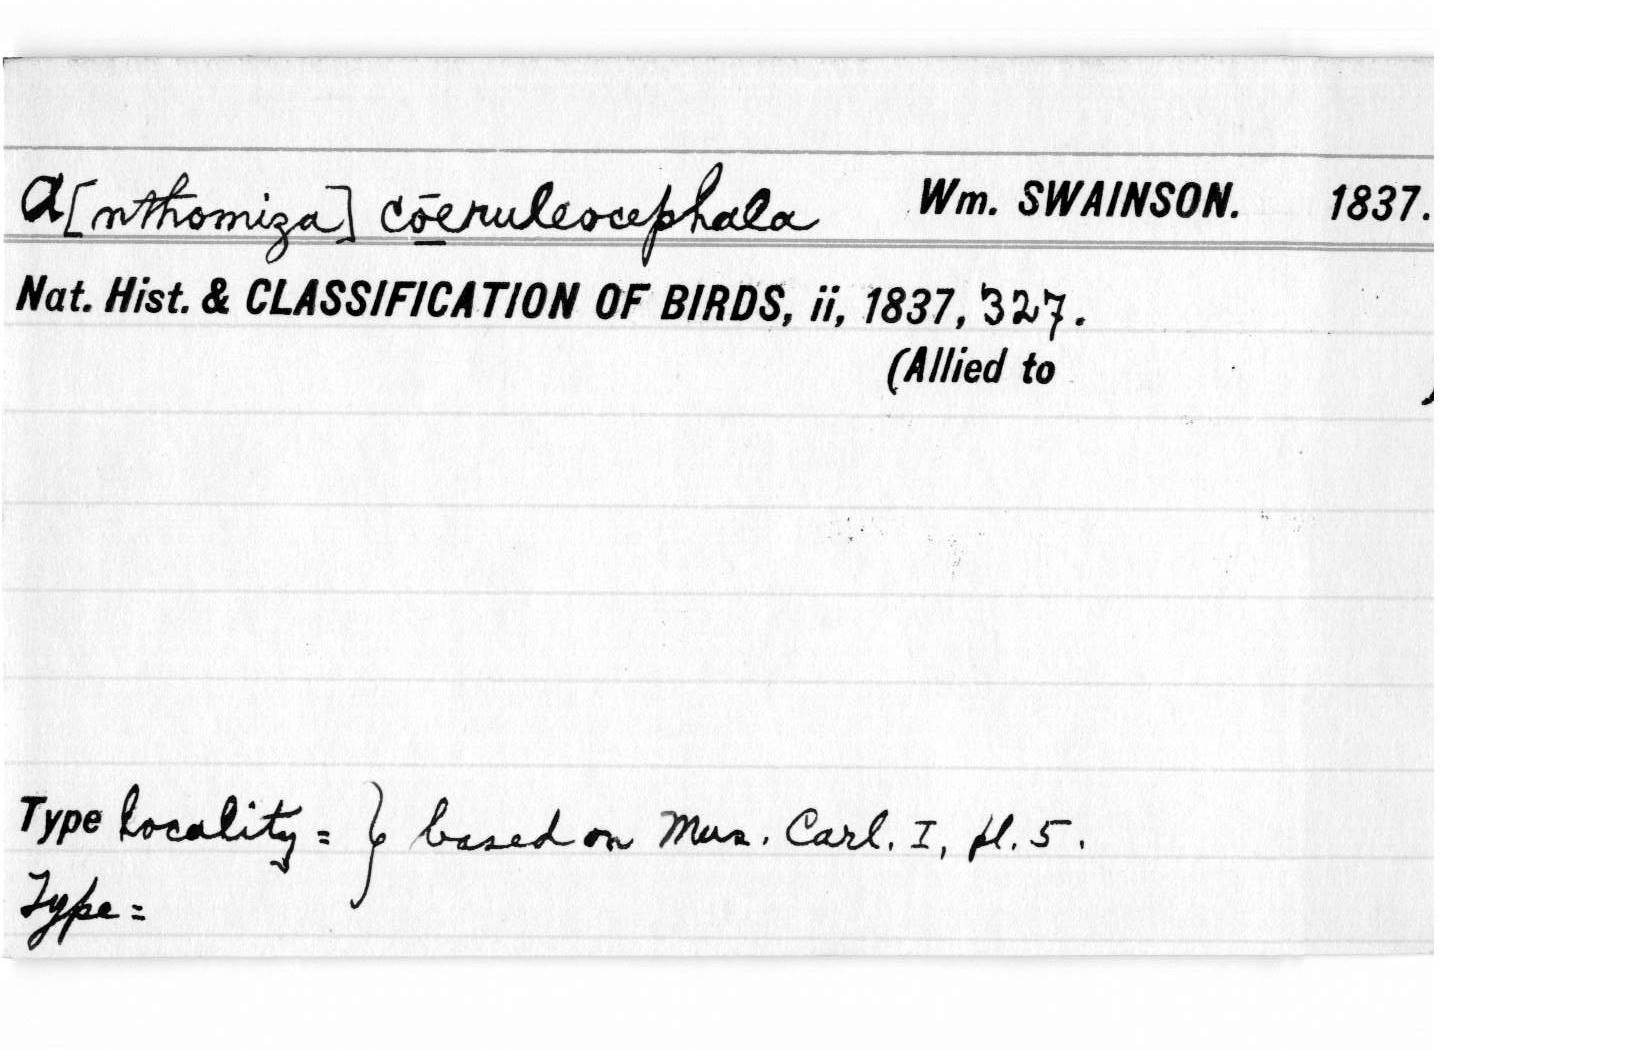 A[nthomiza] cōeruleocephala Wm. SWAINSON. 1837.
Nat. Hist. & CLASSIFICATION OF BIRDS, ii, 1837, 327.
(Allied to )
Type locality = } based on Mus. Carl. I, pl. 5.
Type =